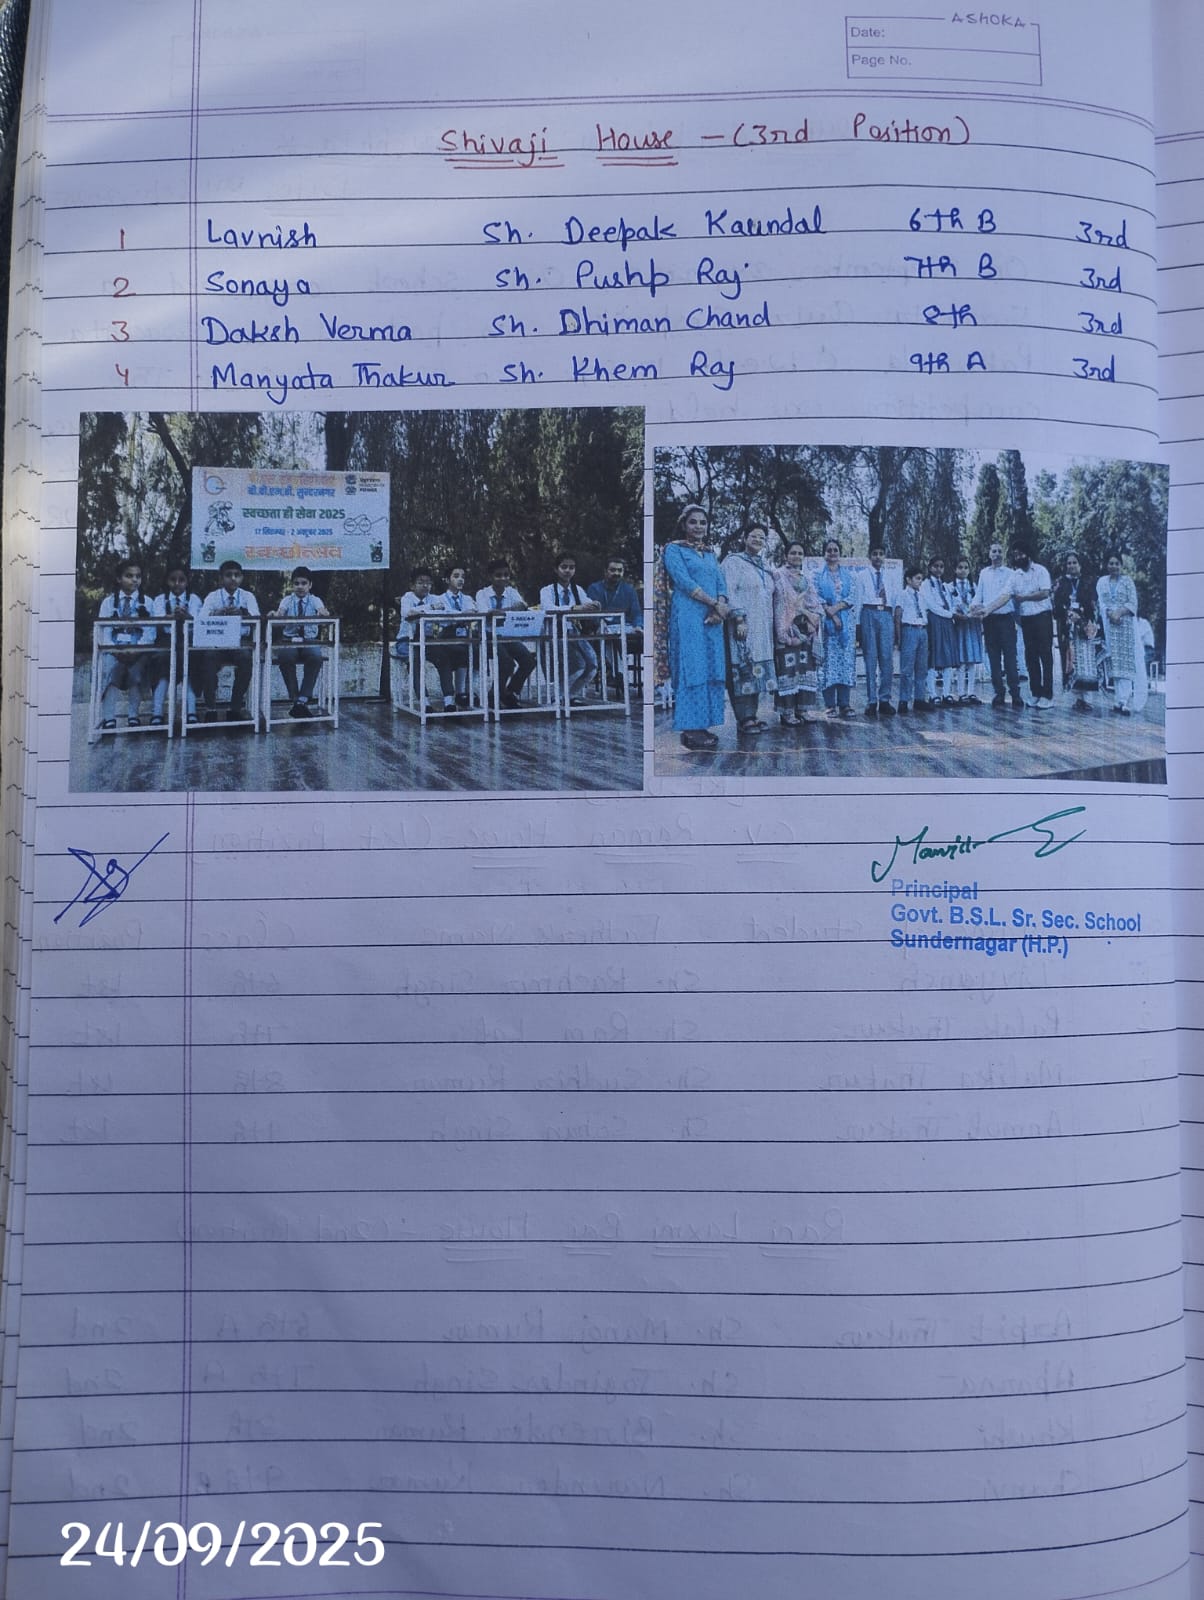 ASHOKA
Date:
Page No.
Shivaji House - (3rd Position)
1 Lavnish Sh. Deepak Kaundal 6th B 3rd
2 Sonaya Sh. Pushp Raj 7th B 3rd
3 Daksh Verma Sh. Dhiman Chand 8th 3rd
4 Manyata Thakur Sh. Khem Raj 9th A 3rd
बी.बी.एम.बी. सुन्दरनगर
स्वच्छता ही सेवा 2025
17 सितम्बर - 2 अक्टूबर 2025
स्वच्छोत्सव
HOUSE
HOUSE
Principal
Govt. B.S.L. Sr. Sec. School
Sundernagar (H.P.)
24/09/2025